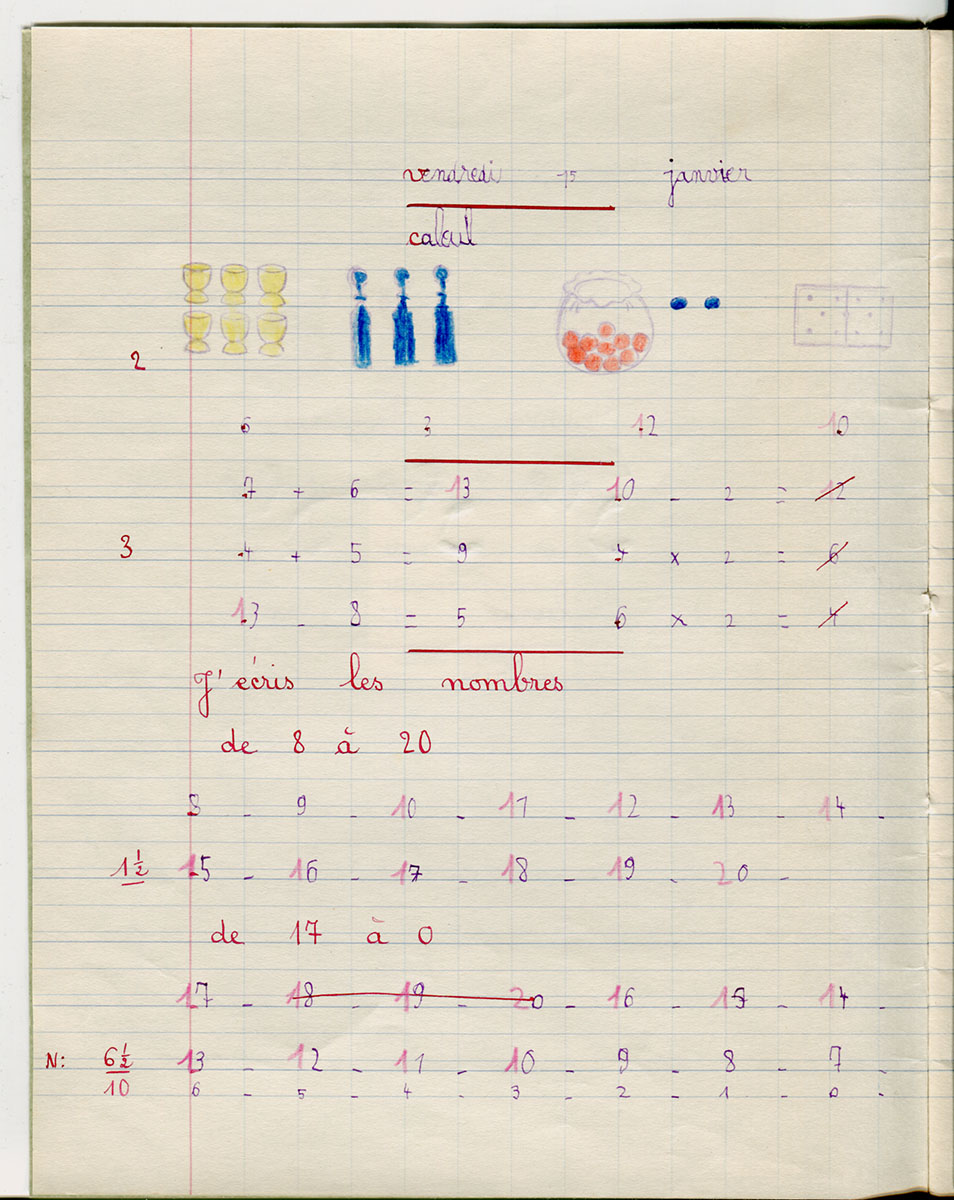 vendredi 15 janvier
calcul
2
6 3 12 10
7 + 6 = 13 10 - 2 = 12
3 4 + 5 = 9 4 x 2 = 6
13 - 8 = 5 6 x 2 = 4
J'écris les nombres
de 8 à 20
8 - 9 - 10 - 11 - 12 - 13 - 14 -
1 1/2 15 - 16 - 17 - 18 - 19 - 20 -
de 17 à 0
17 - 18 - 19 - 20 - 16 - 15 - 14 -
N: 6 1/2 13 - 12 - 11 - 10 - 9 - 8 - 7 -
10 6 - 5 - 4 - 3 - 2 - 1 - 0 -